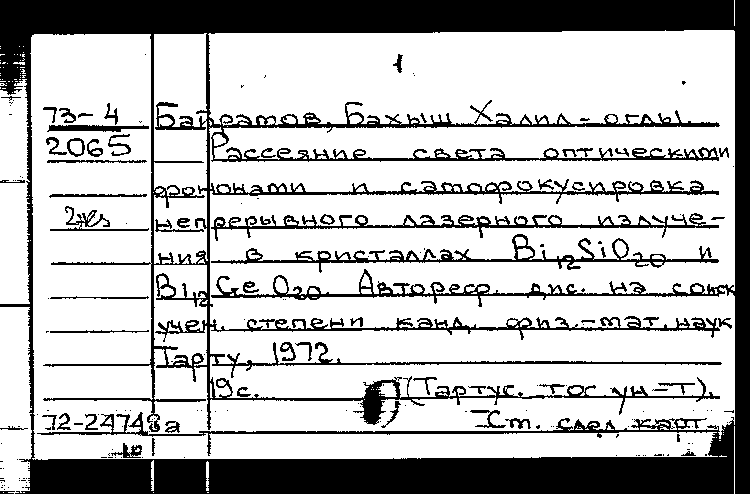 1
73-4 Байрамов, Бахыш Халил-оглы.
2065 Рассеяние света оптическими
фононами и самофокусировка
2жз непрерывного лазерного излуче-
ния в кристаллах Bi12SiO20 и
Bi12GeO20. Автореф. дис. на соиск
учен. степени канд. физ.-мат. наук
Тарту, 1972.
19с. (Тартус. гос ун-т).
72-24743а См. след. карт
10